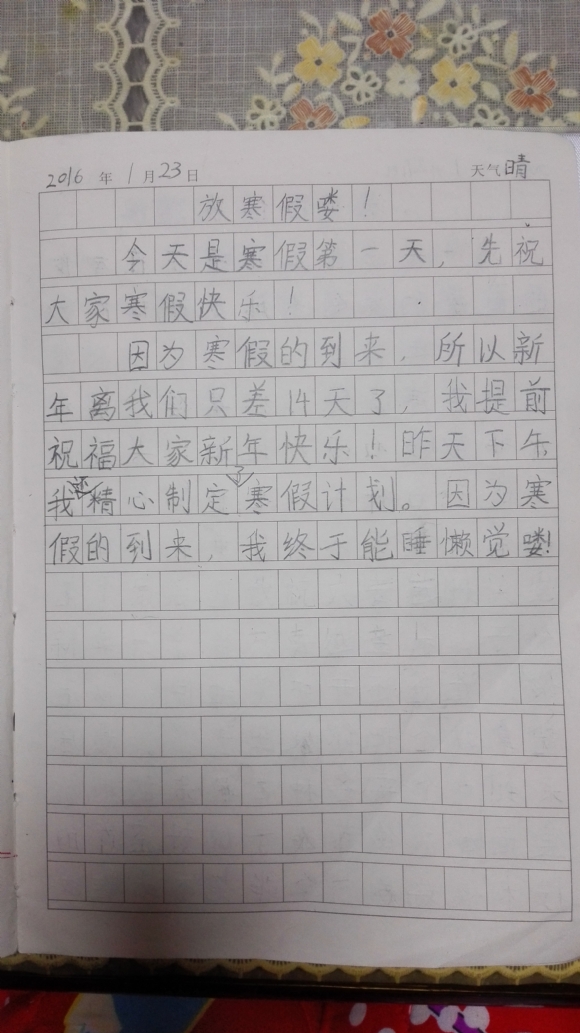 2016年1月23日 天气晴
放寒假喽！
今天是寒假第一天，先祝
大家寒假快乐！
因为寒假的到来，所以新
年离我们只差14天了，我提前
祝福大家新年快乐！昨天下午
我还精心制定了寒假计划。因为寒
假的到来，我终于能睡懒觉喽！